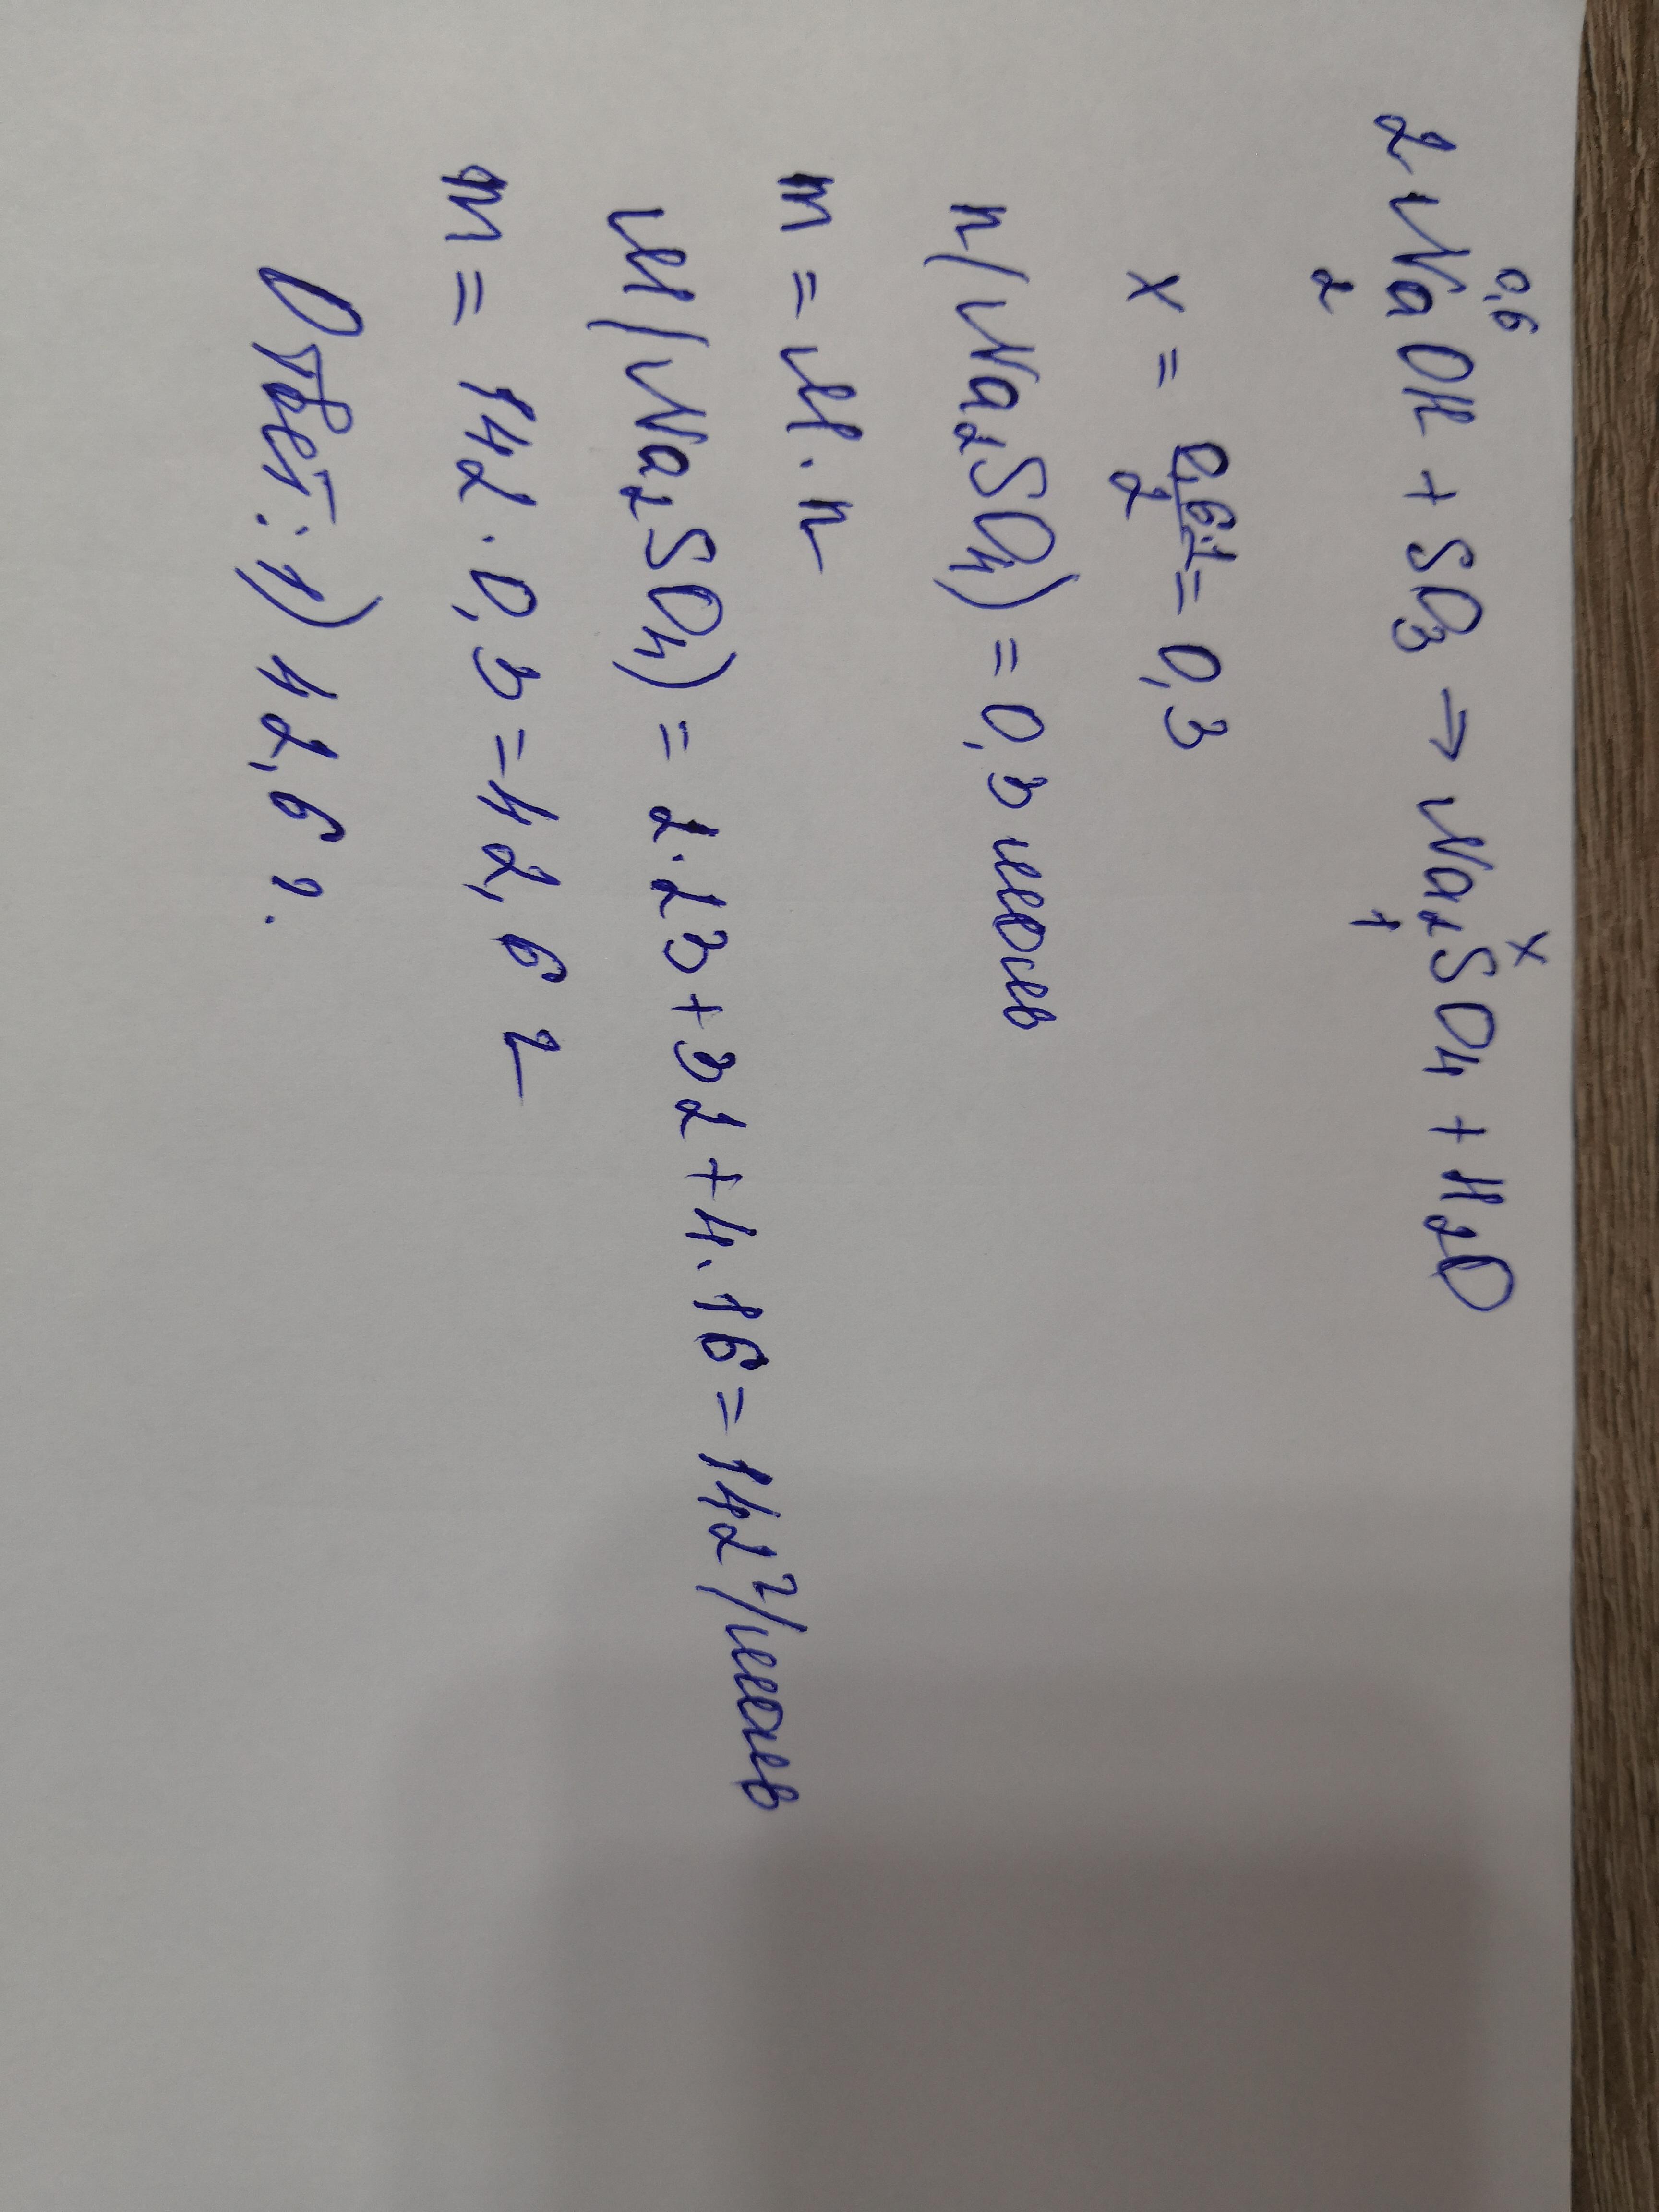 0,6 x
2NaOH + SO3 → Na2SO4 + H2O
2 1
x = 0,6·1/2 = 0,3
n(Na2SO4) = 0,3 моль
m = M·n
M(Na2SO4) = 2·23+32+4·16=142 г/моль
m = 142·0,3=42,6 г
Ответ: 1) 42,6 г.